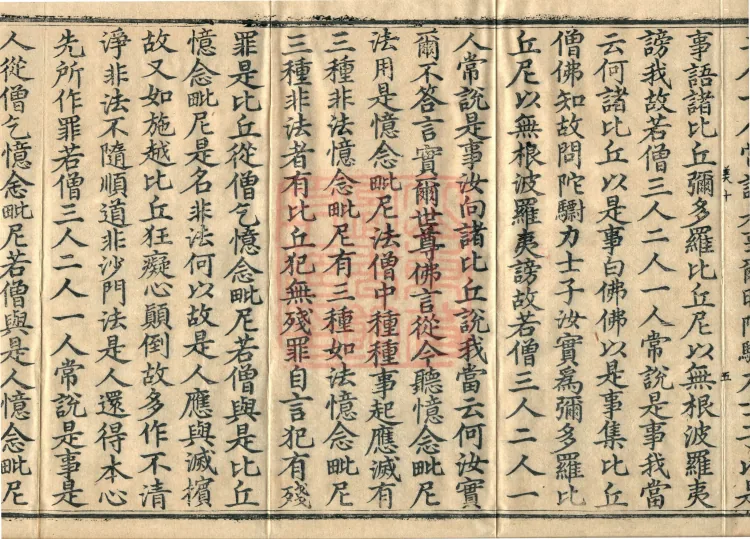 事語諸比丘彌多羅比丘尼以無根波羅夷
謗我故若僧三人二人一人常說是事我當
云何諸比丘以是事白佛佛以是事集比丘
僧佛知故問陀驃力士子汝實爲彌多羅比
丘尼以無根波羅夷謗故若僧三人二人一
人常說是事汝向諸比丘說我當云何汝實
爾不答言實爾世尊佛言從今聽憶念毗尼
法用是憶念毗尼法僧中種種事起應滅有
三種非法憶念毗尼有三種如法憶念毗尼
三種非法者有比丘犯無殘罪自言犯有殘
罪是比丘從僧乞憶念毗尼若僧與是比丘
憶念毗尼是名非法何以故是人應與滅擯
故又如施越比丘狂癡心顛倒故多作不清
淨非法不隨順道非沙門法是人還得本心
先所作罪若僧三人二人一人常說是事是
人從僧乞憶念毗尼若僧與是人憶念毗尼